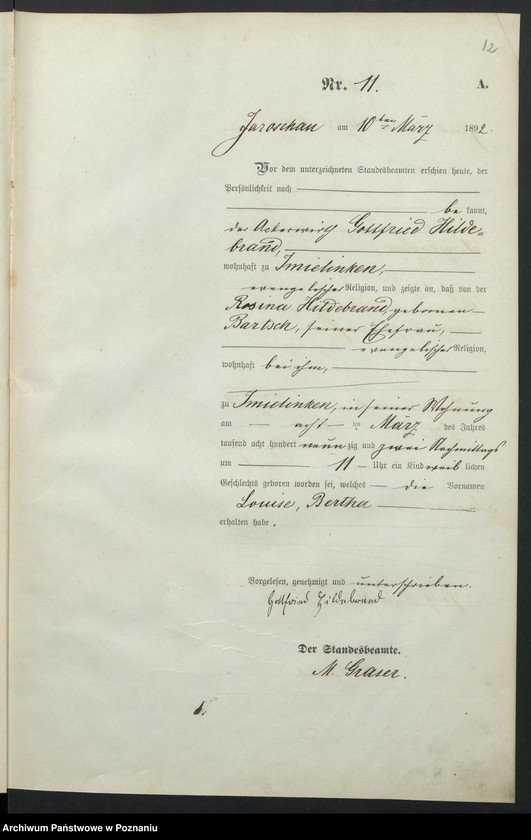 12
Nr. 11. A.
Jaroschau am 10ten März 1892.
Vor dem unterzeichneten Standesbeamten erschien heute, der
Persönlichkeit nach
be kannt,
der Ackerwirth Gottfried Hilde=
brand,
wohnhaft zu Imielinken,
evangelischer Religion, und zeigte an, daß von der
Rosina Hildebrand, geborenen
Bartsch, seiner Ehefrau,
evangelischer Religion,
wohnhaft bei ihm,
zu Imielinken, in seiner Wohnung
am acht en März des Jahres
tausend acht hundert neun zig und zwei Nachmittags
um 11 Uhr ein Kind weib lichen
Geschlechts geboren worden sei, welches die Vornamen
Louise, Bertha
erhalten habe.
Vorgelesen, genehmigt und unterschrieben.
Gottfried Hildebrand
Der Standesbeamte.
M. Graser.
Archiwum Państwowe w Poznaniu